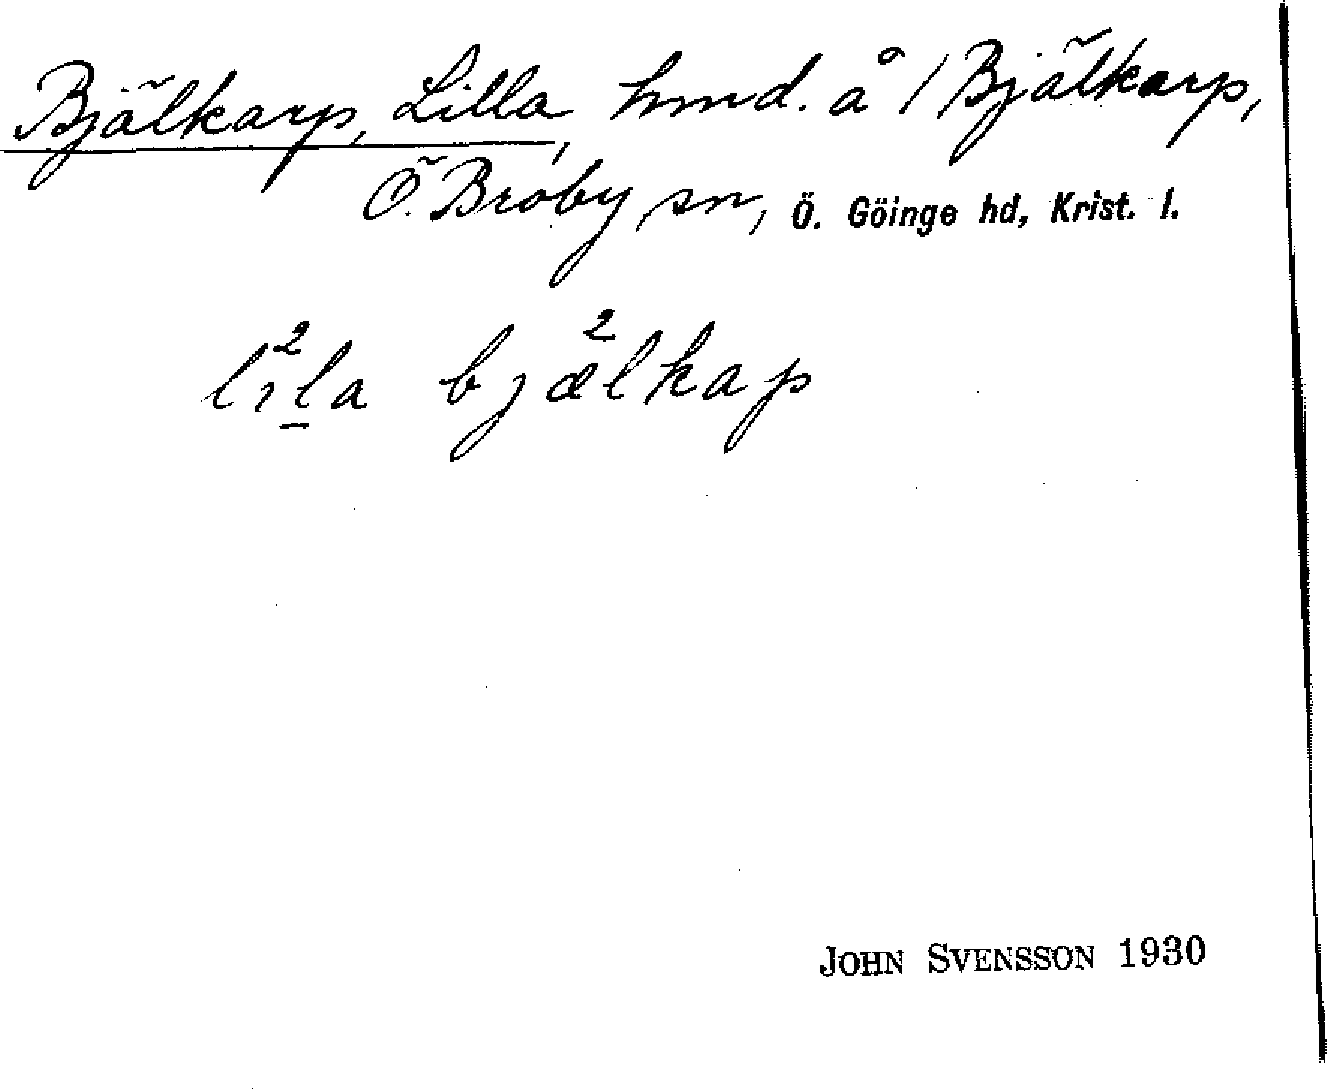 Bjälkarp, Lilla, hmd. å 1 Bjälkarp,
Ö. Broby sn, Ö. Göinge hd, Krist. l.
lı²la bjæ²lkap
JOHN SVENSSON 1930